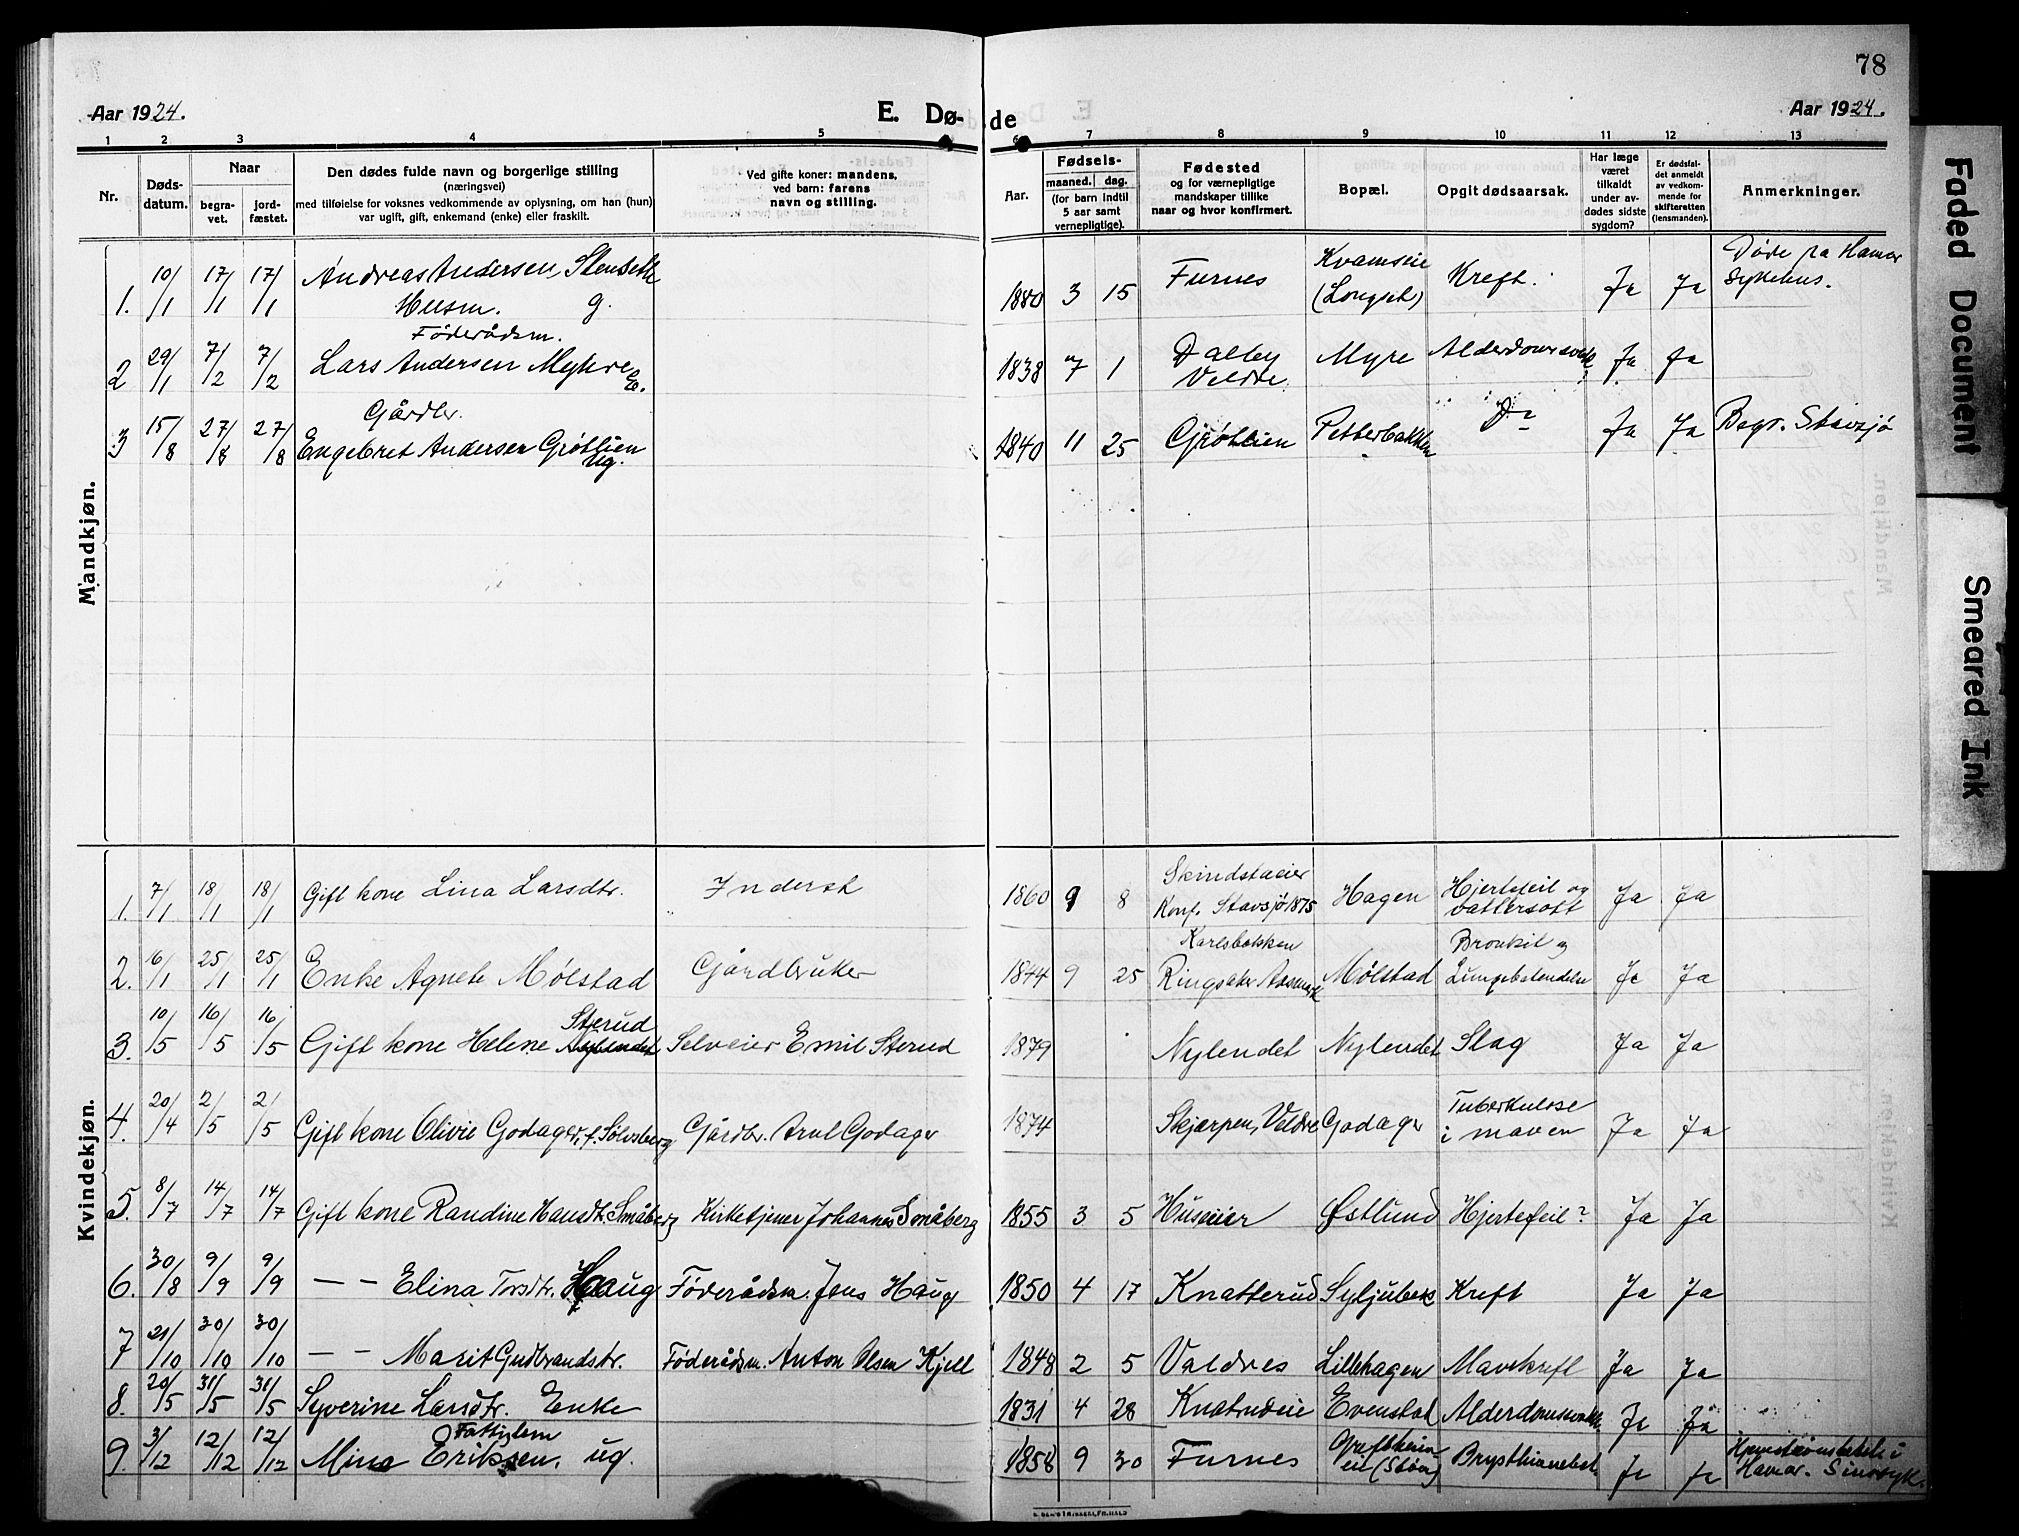 78
Aar 1924.
E. Dø-
de
Aar 1924.
1 2 3 4 5 6 7 8 9 10 11 12 13
Nr.
Døds-
datum.
Naar
begra-
vet.
jord-
fæstet.
Den dødes fulde navn og borgerlige stilling
(næringsvei)
med tilføielse for voksnes vedkommende av oplysning, om han (hun)
var ugift, gift, enkemand (enke) eller fraskilt.
Ved gifte koner: mandens,
ved barn: farens
navn og stilling.
Aar.
Fødsels-
maaned. dag.
(for barn indtil
5 aar samt
vernepligtige).
Fødested
og for værnepligtige
mandskaper tillike
naar og hvor konfirmert.
Bopæl.
Opgit dødsaarsak.
Har læge
været
tilkaldt
under av-
dødes sidste
sygdom?
Er dødsfal-
det anmeldt
av vedkom-
mende for
skifteretten
(lensmanden).
Anmerkninger.
Mandkjøn.
1. 10/1 17/1 17/1 Andreas Andersen Stenseth
Husm. g.
1880 3 15 Furnes Kvamseie
(Longset) Kreft. Ja Ja Døde pa Hamar
Sykehus.
Føderådsm.
2 29/1 7/2 7/2 Lars Andersen Myhre
E.
1838 7 1 Dalby
Veldre Myre Ja Ja
Gårdbr.
3 15/8 27/8 27/8 Engebret Andersen Grøtlien
ug.
1840 11 25 Grøtlien Petterbakken Do Ja Ja Begr. Stavsjø
Kvindekjøn.
1. 7/1 18/1 18/1 Gift kone Lina Larsdtr. Inderst 1860 9 8 Skindstueier
Konf. Stavsjø 1875 Hagen Hjertefeil og
vattersott Ja Ja
2. 16/1 25/1 25/1 Enke Agnete Mølstad Gårdbruker 1844 9 25 Karlsbakken
Ringsaker Aasmark Mølstad Bronkit og
Lungebetendelse Ja Ja
3. 10/5 16/5 16/5 Gift kone Helene Nylendet Sterud Selveier Emil Sterud 1879 Nylendet Nylendet Slag Ja Ja
4. 20/4 2/5 2/5 Gift kone Olivie Godager, f. Sølvsberg Gårdbr. Arnt Godager 1874 Skjærpen, Veldre Godager Tuberkulose
i maven Ja Ja
5. 8/7 14/7 14/7 Gift kone Randine Hansdtr. Småberg Kirketjener Johannes Småberg 1855 3 5 Huseier Østlund Hjertefeil? Ja Ja
6. 30/8 9/9 9/9 — — Elina Torsdtr. Haug Føderådsm. Jens Haug 1850 4 17 Knatterud Kreft Ja Ja
7 21/10 30/10 30/10 — — Marit Gudbrandsdtr. Føderådsm. Anton Olsen Kjell 1848 2 5 Valdres Lillehagen Mavekreft Ja Ja
8. 20/5 31/5 31/5 Syverine Larsdtr. Enke 1831 4 28 Knatrudeie Evenstad Alderdomssvakh. Ja Ja
Fattiglem
9. 3/12 12/12 12/12 Mina Eriksen, ug. 1858 9 30 Furnes
eie (Stove) Brysthinnebet. Ja Ja
Hamar. Sinnsyk.
Faded Document
Smeared Ink